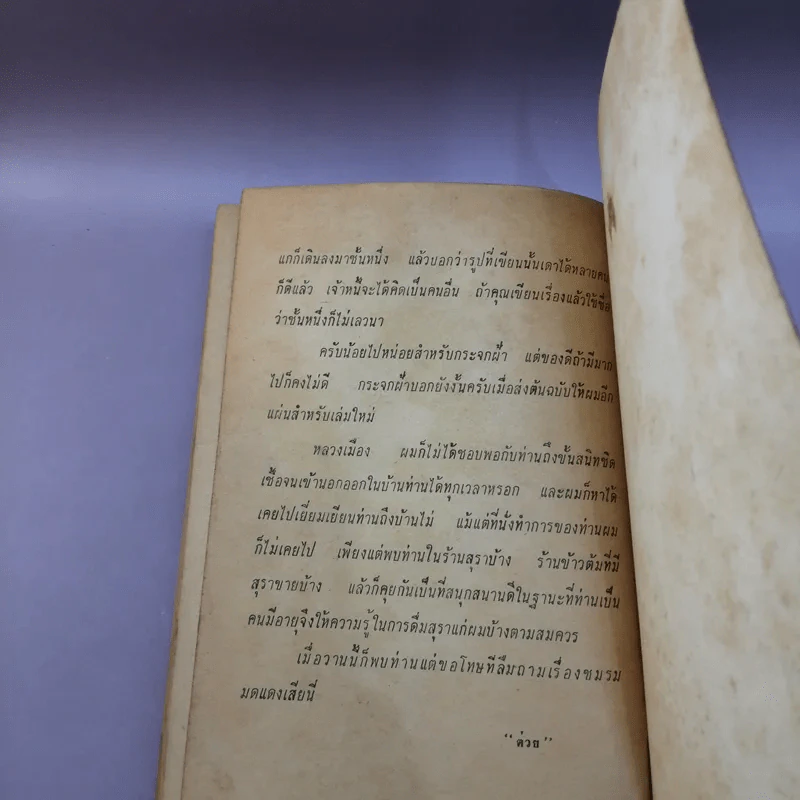 แกก็เดินลงมาชั้นหนึ่ง แล้วบอกว่ารูปที่เขียนนั้นเดาได้หลายคน
ก็ดีแล้ว เจ้าหนี้จะได้คิดเป็นคนอื่น ถ้าคุณเขียนเรื่องแล้วใช้ชื่อ
ว่าชั้นหนึ่งก็ไม่เลวนา
ครับน้อยไปหน่อยสำหรับกระจกฝ้า แต่ของดีถ้ามีมาก
ไปก็คงไม่ดี กระจกฝ้าบอกยังงั้นครับเมื่อส่งต้นฉบับให้ผมอีก
แผ่นสำหรับเล่มใหม่
หลวงเมือง ผมก็ไม่ได้ชอบพอกับท่านถึงขั้นสนิทชิด
เชื้อจนเข้านอกออกในบ้านท่านได้ทุกเวลาหรอก และผมก็หาได้
เคยไปเยี่ยมเยียนท่านถึงบ้านไม่ แม้แต่ที่นั่งทำการของท่านผม
ก็ไม่เคยไป เพียงแต่พบท่านในร้านสุราบ้าง ร้านข้าวต้มที่มี
สุราขายบ้าง แล้วก็คุยกันเป็นที่สนุกสนานดีในฐานะที่ท่านเป็น
คนมีอายุจึงให้ความรู้ในการดื่มสุราแก่ผมบ้างตามสมควร
เมื่อวานนี้ก็พบท่านแต่ขอโทษที่ลืมถามเรื่องชมรม
มดแดงเสียนี่
"ต่วย"